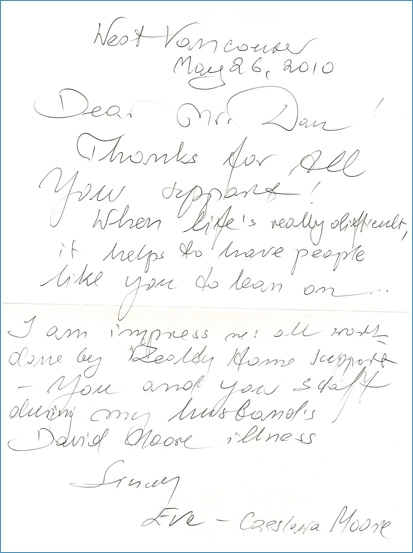 West Vancouver
May 26, 2010
Dear Mr. Dan!
Thanks for all
you support!
When life's really difficult,
it helps to have people
like you to lean on...
I am impress all work
done by Home support
- You and you staff
during my husband's
David Moore illness
Eve - Moore